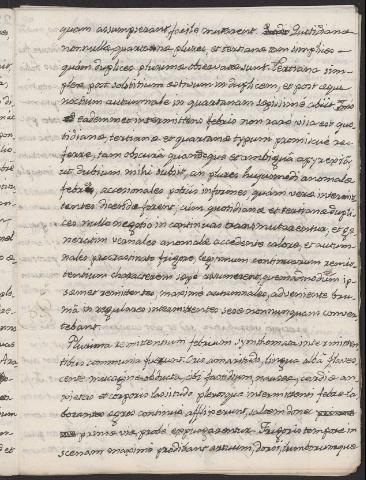 quam assumpserant, facile mutarent. Quotidianae
nonnullae, quartanae plures, et tertianae tam simplices
quam duplices plurimae observatae sunt. Tertiana sim-
plex post solstitium aestivum in duplicem, et post aequi
noctium autumnale in quartanam saepissime abiit.
eademmet intermittens febris non raro visa est quo
tidianae, tertianae et quartanae typum promiscue re-
ferre, tam obscura quandoque et ambigua apyrexia,
ut dubium mihi subiit, an plures hujusmodi anomalae
febres, accessionales potius informes, quam verae intermit
tentes dicendae forent; cum quotidianae et tertianae dupli
ces nullo negotio in continuas transmutarentur, et ge
neratim vernales anomalae accedente calore, et autum
nales procrastinato frigore, legitimum continuarum remit
tentium characterem saepe assumerent, quemadmodum ip-
saemet remittentes, maxime autumnales, adveniente bru
ma in regulares intermittentes sese nonnunquam conver
tebant.
Plurima remittentium febrium symptomata intermitten
tibus communia fuerunt. Oris amarities, lingua alba flaves-
cente mucagine obducta, cibi fastidium, nausea, cardiae an-
xietas et corporis lassitudo plerosque intermittente febre la-
borantes aegros continuo afflixerunt, saltem donec
primae viae probe expurgarentur. Frigoris tempore in
scenam maxime prodibant artuum, dorsi, lumborumque